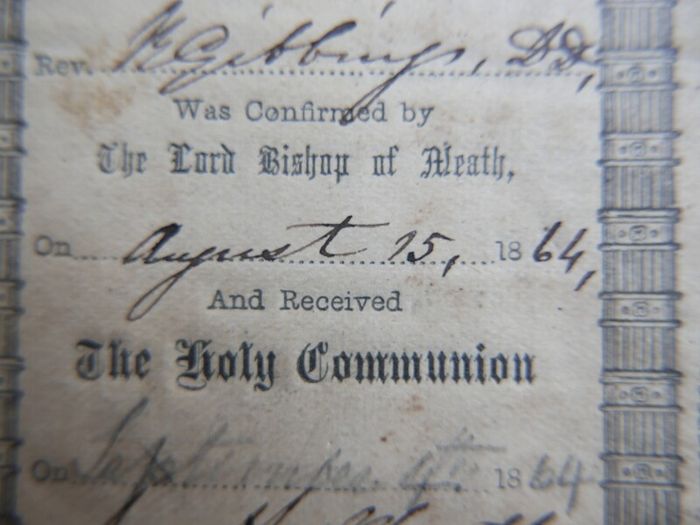 Rev. R Gibbings, DD,
Was Confirmed by
The Lord Bishop of Meath,
On August 15, 1864,
And Received
The Holy Communion
On September 4th 1864